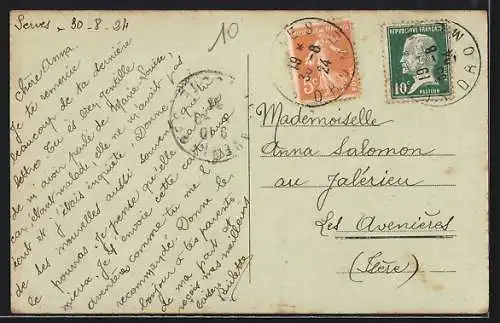 Serves - 30-8-24
10
Chère Anna.
Je te remercie
beaucoup de ta dernière
lettre. Tu es bien gentille
de m'avoir parlé de Marie Louise;
car, étant malade, elle ne m'avait pas
écrit et j'étais inquiète. Donne
de ses nouvelles aussi souvent que tu
le pourras. Je pense qu'elle va
mieux. Je t'envoie cette carte
comme tu me l'
recommandé. Donne le
bonjour à tes parents
de ma part et
mes meilleurs
baisers
Juliette
REPUBLIQUE FRANCAISE
10c
PASTEUR
5
19 * 8
24
DROME
19 - 8
DROME
Mademoiselle
Anna Salomon
au Jalérieu
Les Avenières
(Isère)